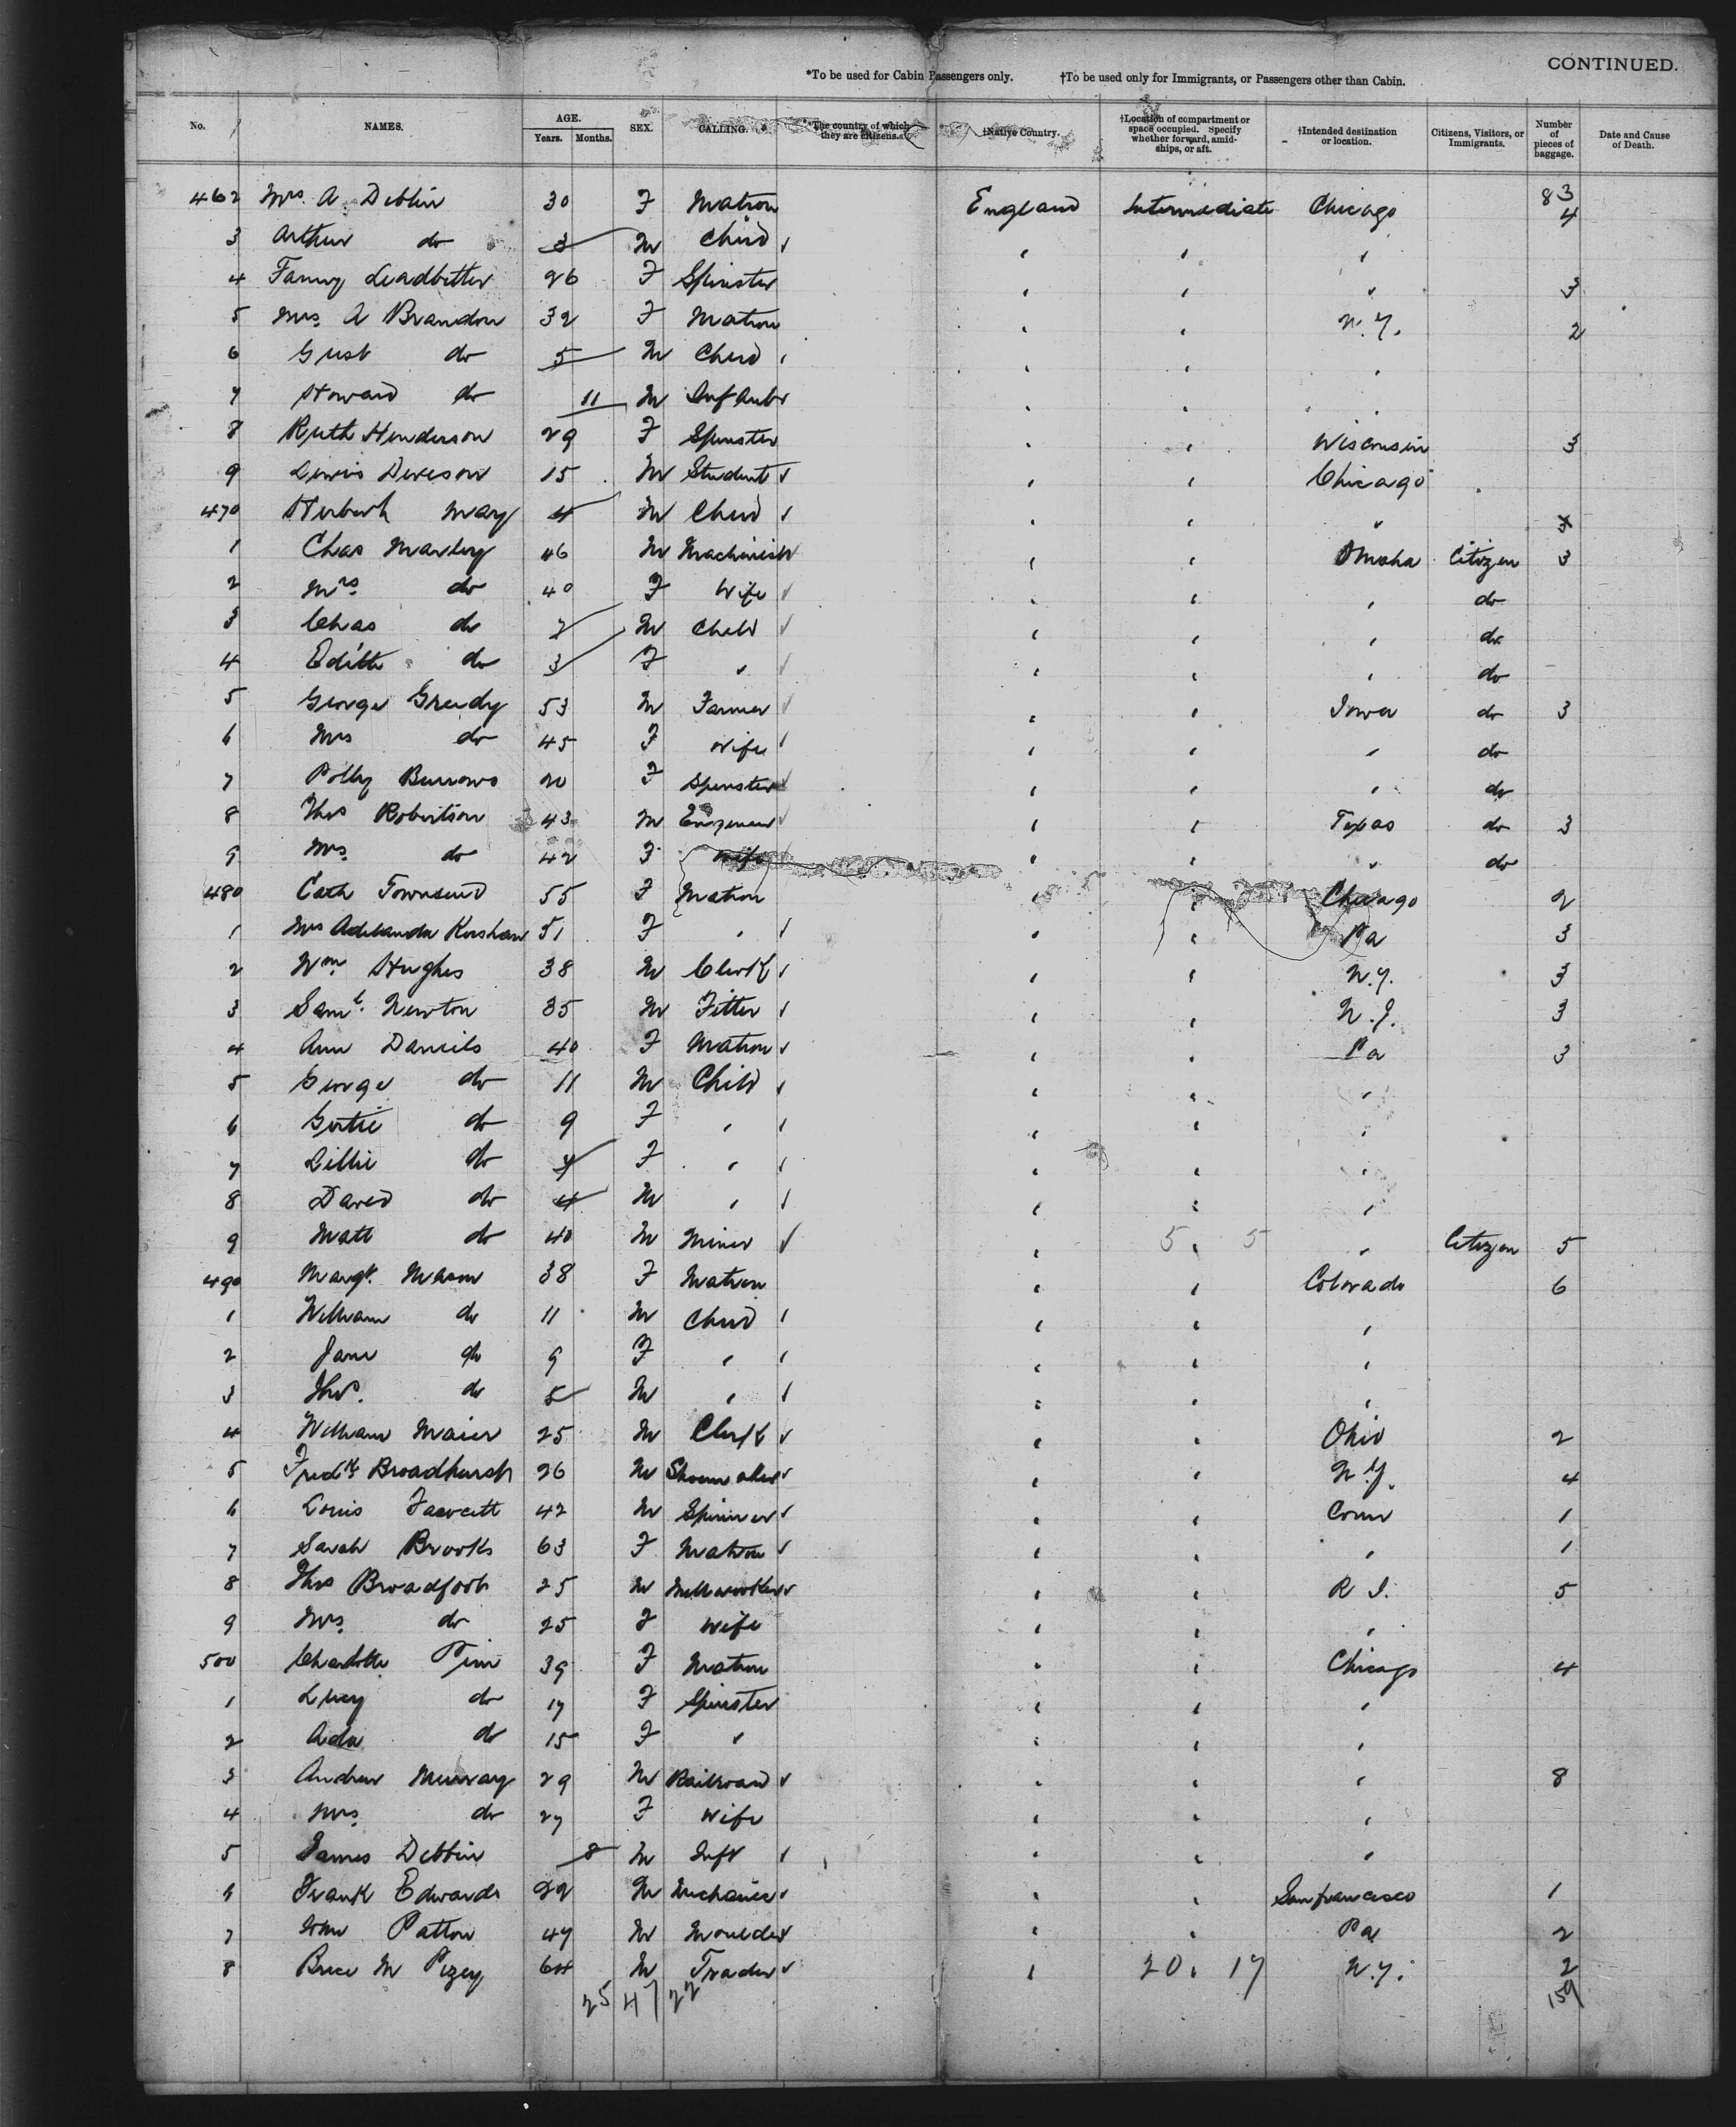 CONTINUED.
*To be used for Cabin Passengers only. †To be used only for Immigrants, or Passengers other than Cabin.
No. NAMES. AGE. Years. Months. SEX. CALLING. *The country of which they are citizens. †Native Country. †Location of compartment or space occupied. Specify whether forward, amidships, or aft. †Intended destination or location. Citizens, Visitors, or Immigrants. Number of pieces of baggage. Date and Cause of Death.
83
462 Mrs. A Deblin 30 F Matron England Intermediate Chicago 4
3 Arthur do 3 M Child " " "
4 Fanny Leadbetter 26 F Spinster " " " 3
5 Mrs. A Brandon 32 F Matron " " N.Y. 2
6 Gust do 5 M Child " " "
7 Howard do 11 M Infant " " "
8 Ruth Henderson 29 F Spinster " " Wisconsin 3
9 Lewis 15 M Student " " Chicago
470 Herbert May 4 M Child " " "
1 Chas Marley 46 M Machinist " " Omaha Citizen 3
2 Mrs do 40 F Wife " " " do
3 Chas do 7 M Child " " " do
4 Edith do 3 F " " " " do
5 George Greedy 53 M Farmer " " Iowa do 3
6 Mrs do 45 F Wife " " " do
7 Polly Burrows 20 F Spinster " " " do
8 Thos Robertson 43 M Engineer " " Texas do 3
9 Mrs. do 42 F Wife " " " do
480 Cath Townsend 55 F Matron " " Chicago 2
1 Mrs Kershaw 51 F " " " Pa 3
2 Wm Hughes 38 M Clerk " " N.Y. 3
3 Saml. Newton 35 M Fitter " " N.J. 3
4 Ann Daniels 40 F Matron " " Pa 3
5 George do 11 M Child " " "
6 Gertie do 9 F " " " "
7 Lillie do 7 F " " " "
8 David do 4 M " " " "
9 Matt do 40 M Miner " 5 " 5 " Citizen 5
490 Margt. Mason 38 F Matron " " Colorado 6
1 William do 11 M Child " " "
2 Jane do 9 F " " " "
3 Thos. do 5 M " " " "
4 William Maier 25 M Clerk " " Ohio 2
5 Fredk. Broadhurst 26 M Shoemaker " " N.Y. 4
6 Louis Fawcett 42 M Spinner " " Conn 1
7 Sarah Brooks 63 F Matron " " " 1
8 Thos Broadfoot 25 M Millworker " " R I. 5
9 Mrs. do 25 F Wife " " "
500 Charlotte Pim 39 F Matron " " Chicago 4
1 Lucy do 17 F Spinster " " "
2 Ada do 15 F " " " "
3 Andrew Murray 29 M Railroad " " " 8
4 Mrs. do 27 F Wife " " "
5 James Deblin 8 M Inft " " "
6 Frank Edwards 22 M Mechanic " " Sanfrancisco 1
7 Wm Patton 47 M Moulder " " Pa 2
8 Bruce M Pizey 64 M Trader " 20 " 17 N.Y. 2
25 47 22 159